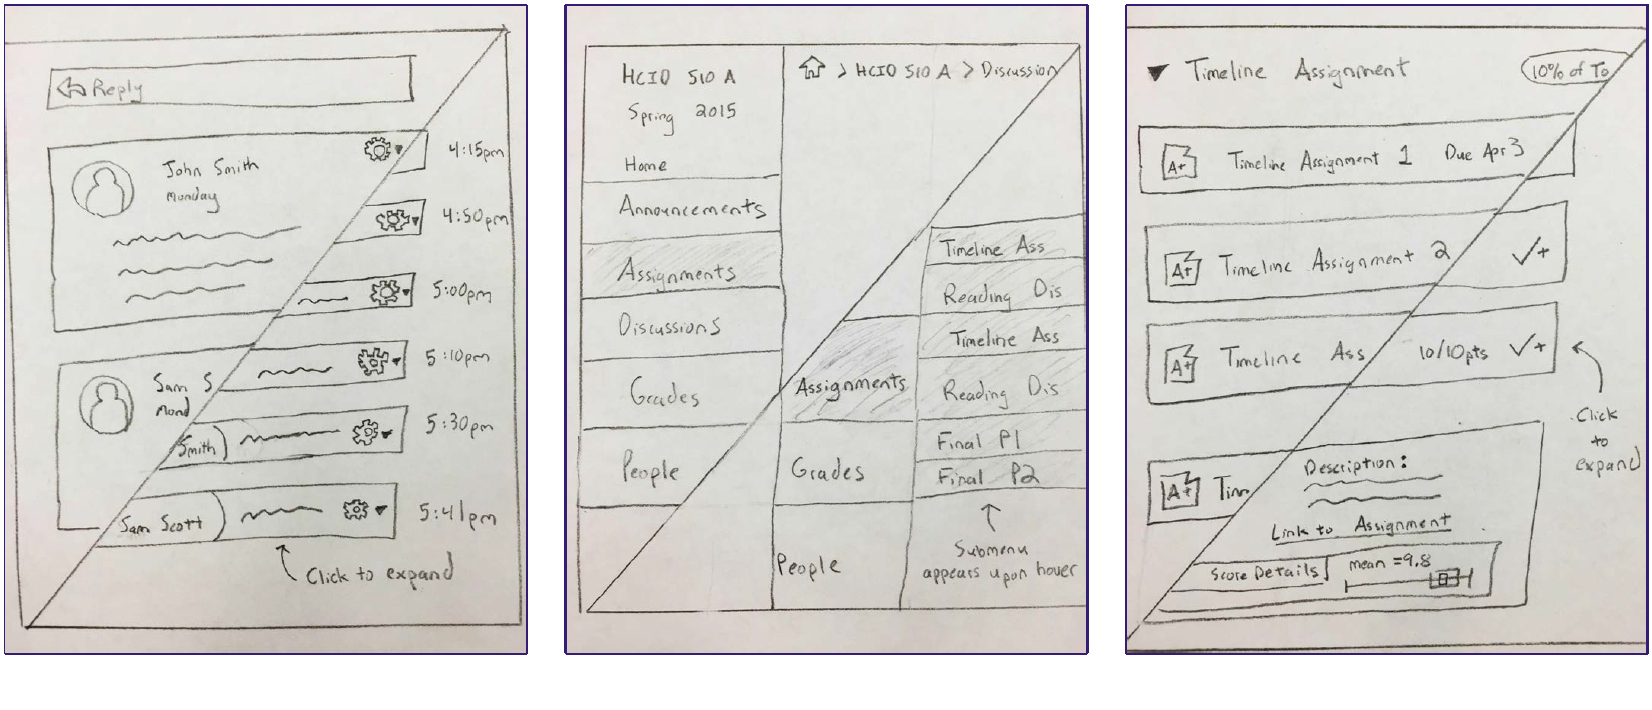 Reply
John Smith
Monday
4:15pm
4:50pm
5:00pm
5:10pm
Sam S
Mond
5:30pm
Smith
5:41pm
Sam Scott
Click to expand
HCID 510 A
Spring 2015
Home
Announcements
Assignments
Discussions
Grades
People
> HCID 510 A > Discussion
Timeline Ass
Reading Dis
Timeline Ass
Reading Dis
Final P1
Final P2
Assignments
Grades
People
Submenu
appears upon hover
▼ Timeline Assignment 10% of To
A+ Timeline Assignment 1 Due Apr 3
A+ Timeline Assignment 2 ✓+
A+ Timeline Ass 10/10pts ✓+
Click
to
expand
A+ Tim
Description:
Link to Assignment
Score Details mean = 9.8